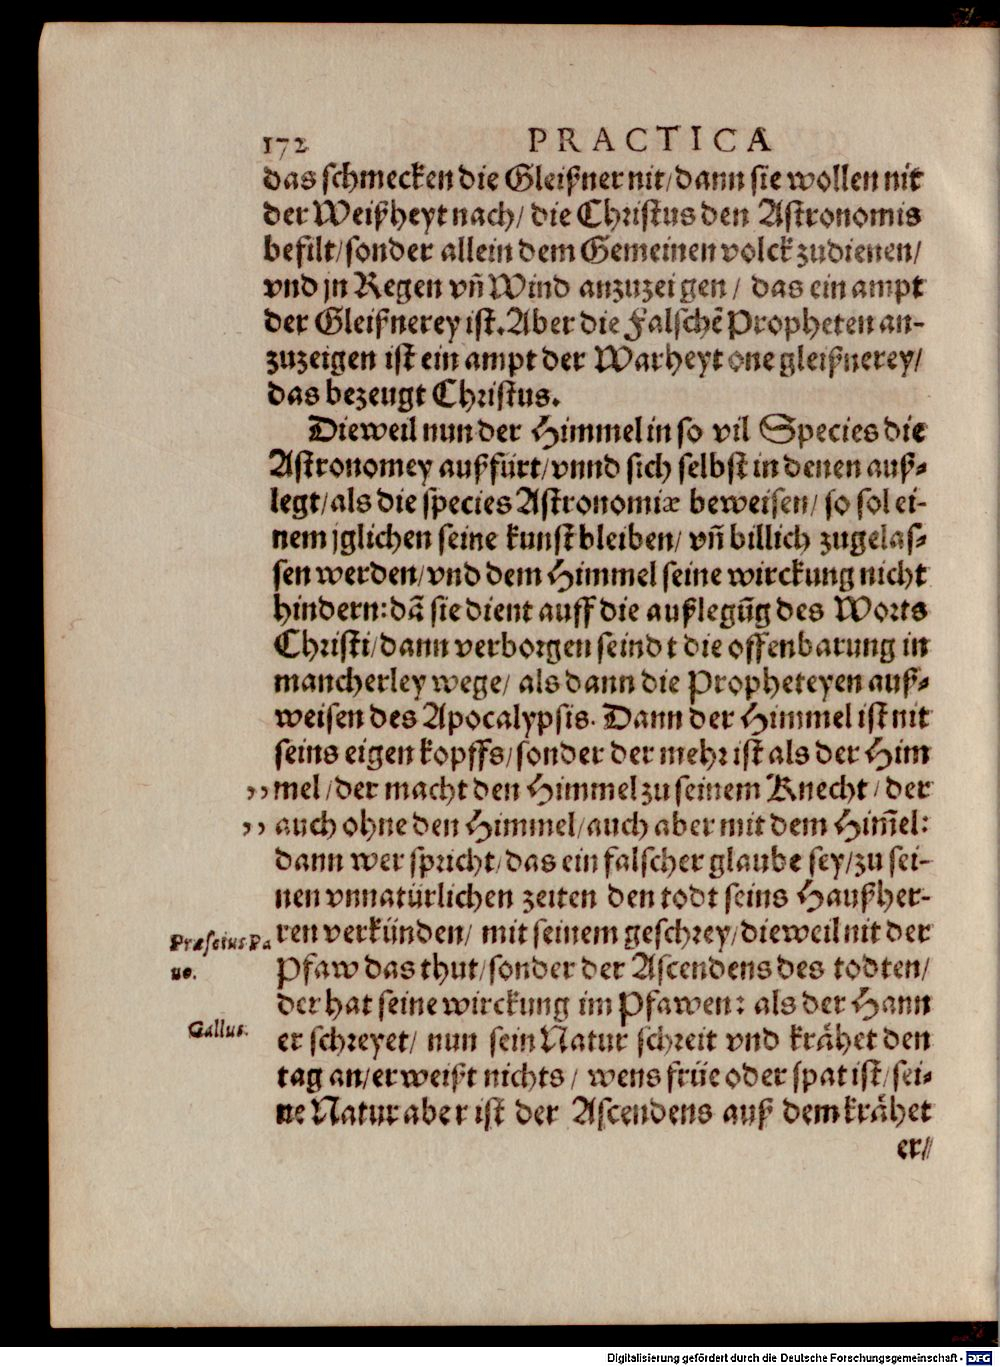 172 PRACTICA
das schmecken die Gleißner nit/dann sie wollen nit
der Weißheyt nach/ die Christus den Astronomis
befilt/sonder allein dem Gemeinen volck zudienen/
vnd jn Regen vñ Wind anzuzeigen/ das ein ampt
der Gleißnerey ist. Aber die Falschẽ Propheten an-
zuzeigen ist ein ampt der Warheyt one gleißnerey/
das bezeugt Christus.
Dieweil nun der Himmel in so vil Species die
Astronomey außfürt/vnnd sich selbst in denen auß-
legt/als die species Astronomiæ beweisen/ so sol ei-
nem jglichen seine kunst bleiben/ vñ billich zugelas-
sen werden/vnd dem Himmel seine wirckung nicht
hindern: dã sie dient auff die außlegũg des Worts
Christi/dann verborgen seindt die offenbarung in
mancherley wege/ als dann die Propheteyen auß-
weisen des Apocalypsis. Dann der Himmel ist nit
seins eigen kopffs/sonder der mehr ist als der Him
,, mel/der macht den Himmel zu seinem Knecht/der
,, auch ohne den Himmel/auch aber mit dem Him̃el:
dann wer spricht/das ein falscher glaube sey/zu sei-
nen vnnatürlichen zeiten den todt seins Haußher-
Præscius Pa ren verkünden/ mit seinem geschrey/dieweil nit der
uo. Pfaw das thut/sonder der Ascendens des todten/
der hat seine wirckung im Pfawen: als der Hann
Gallus. er schreyet/ nun sein Natur schreit vnd krähet den
tag an/er weißt nichts/ wens früe oder spat ist/sei-
ne Natur aber ist der Ascendens auß dem krähet
er//
Digitalisierung gefördert durch die Deutsche Forschungsgemeinschaft - DFG